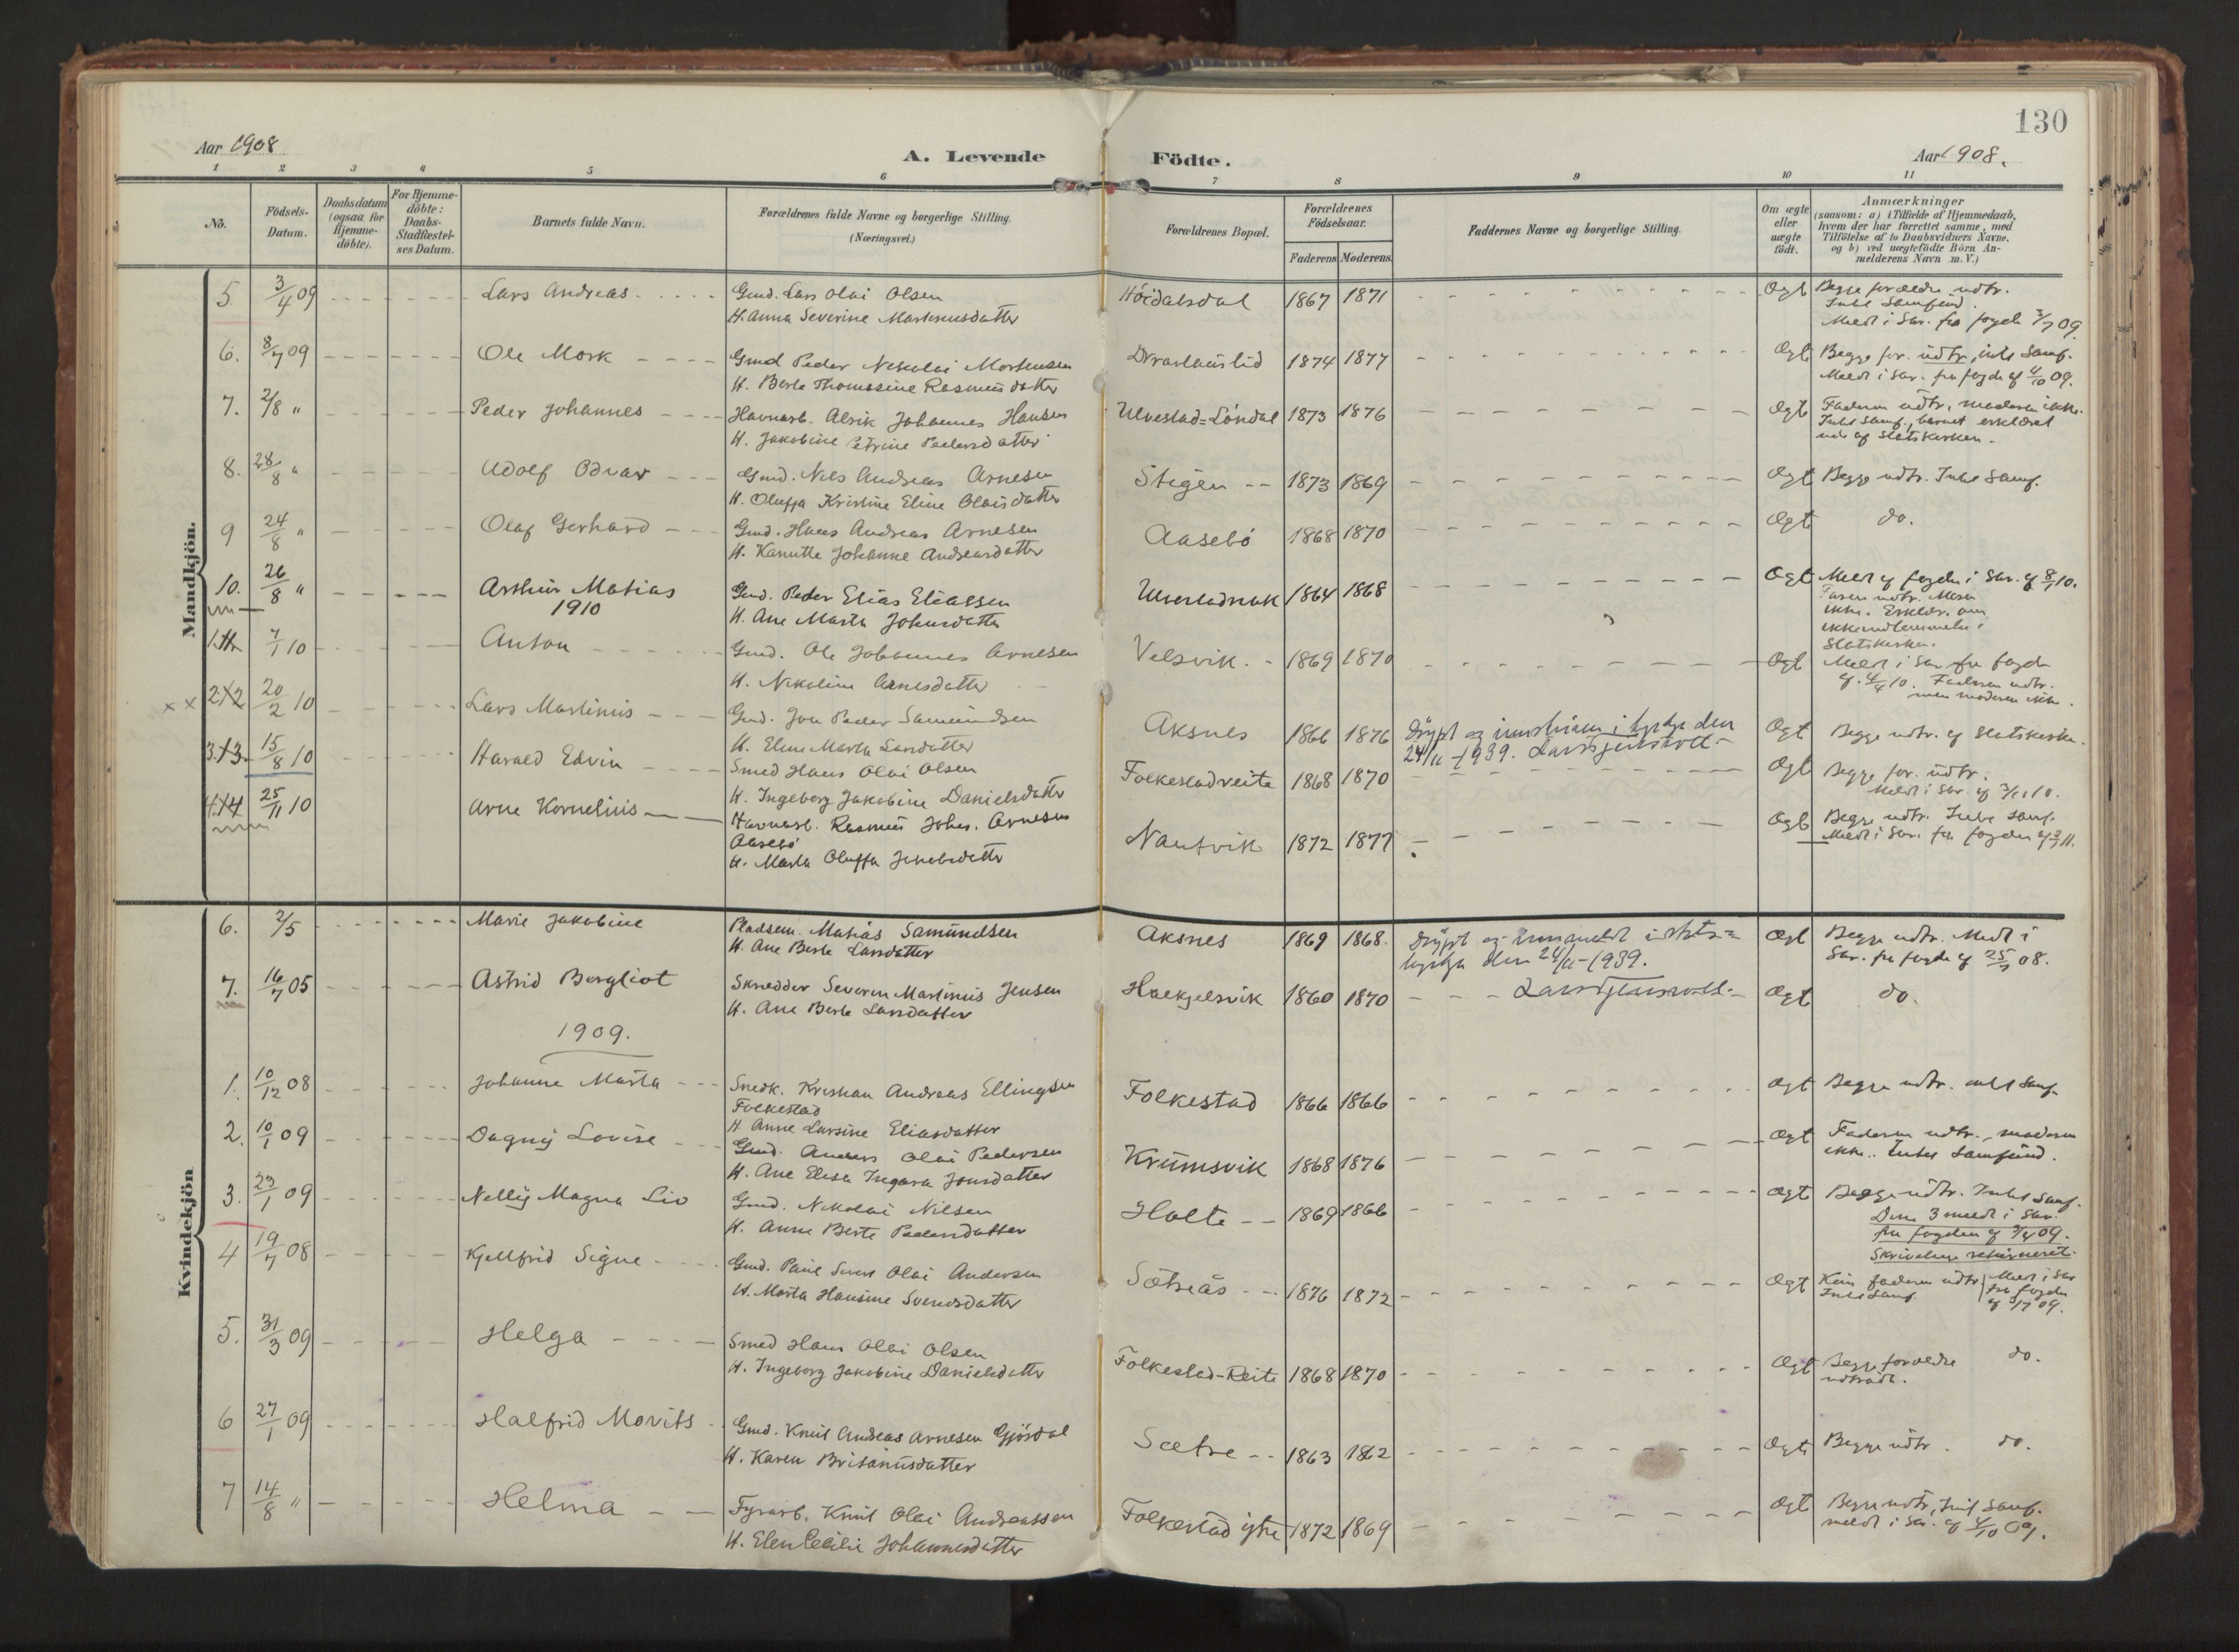 130
Aar 1908
A. Levende Födte.
Aar 1908.
1 2 3 4 5 6 7 8 9 10 11
No.
Födsels-Datum.
Daabsdatum (ogsaa for Hjemme-döbte).
For Hjemme-döbte: Daabs-Stadfæstel-ses Datum.
Barnets fulde Navn.
Forældrenes fulde Navne og borgerlige Stilling.
(Næringsvei.)
Forældrenes Bopæl.
Forældrenes Födselsaar.
Faderens Moderens
Faddernes Navne og borgerlige Stilling.
Om ægte eller uægte födt.
Anmærkninger
(saasom: a) i Tilfælde af Hjemmedaab,
hvem der har forrettet samme, med
Tilföielse af to Daabsvidners Navne.
og b) ved uægtefödte Börn An-
melderens Navn m.V.)
Mandkjön.
5. 3/4 09 Lars Andreas Gmd. Lars Olai Olsen Höidalsdal 1867 1871 Ogt Begge forældre udtr.
H. Anna Severine Martinusdatter
Meldt i Skr. fra fogden 3/7 09
6. 8/7 09 Ole Mork Gmd Peder Nikolai Mortensen 1874 1877 Ogt Begge for. udtr, Intet Samf.
H. Berte Thomasine Rasmusdatter Meldt i Skr. fra fogden af 4/10 09.
7. 2/8 " Peder Johannes Havnarb. Alrik Johannes Hansen Ulvestad=Löndal 1873 1876 Ogt Faderen udtr, moderen ikke.
H. Jakobine Petrine Pedersdatter Intet Samf., barnet erklæret
ud af Statskirken.
8. 28/8 " Adolf Odvar Gmd. Nils Andreas Arnesen Stigen 1873 1869 Ogt Begge udtr. Intet Samf.
H. Oluffa Kristine Eline Olaisdatter
9 24/8 " Olaf Gerhard Gmd. Hans Andreas Arnesen Aasebö 1868 1870 Ogt do.
H. Kanutte Johanne Andreasdatter
10. 26/8 " Arthur Matias Gmd. Peder Elias Eliassen 1864 1868 Ogt Meldt af fogden i Skr. af 8/1 10.
1910 H. Ane Marta Johnsdatter
ikke. Erklær. om
Statskirken.
1. 7/1 10 Anton Gmd. Ole Johannes Arnesen Velsvik. 1869 1870 Ogt Meldt i Skr fra fogden
H. Nikoline Arnesdatter af 4/4 10. Faderen udtr.
men moderen ikke.
x x 2 20/2 10 Lars Martinus Gmd. Jon Peder Samundsen Aksnes 1866 1876 Döypt og innskriven i kyrkja den Ogt Begge udtr. af Statskirken.
H. Eline Marta Larsdatter 24/11 - 1939.
3. 15/8 10 Harald Edvin Smed Hans Olai Olsen Folkestadreite 1868 1870 Ogt Begge for. udtr.
H. Ingeborg Jakobine Danielsdatter
4 25/11 10 Arne Kornelius Havnarb. Rasmus Johs. Arnesen Nautvik 1872 1877 Ogt Begge udtr. Intet Samf.
Aasebö Meldt i Skr. fra fogden
H. Marta Oluffa Jakobsdatter
Kvindekjön
6. 2/5 Marie Jakobine Pladsem. Matias Samundsen Aksnes 1869 1868. Döypt og innmeldt i stats= Ogt Begge udtr. Meldt i
H. Ane Berte Larsdatter kyrkja den 24/11-1939. Skr. fra fogden af 25/7 08.
7. 16/7 05 Astrid Bergliot Skrædder Severin Martinus Jensen 1860 1870 Ogt do.
H. Ane Berte Larsdatter
1909.
1. 10/12 08 Johanne Marta Snedk. Kristian Andreas Ellingsen Folkestad 1866 1866 Ogt Begge udtr. intet Samf.
Folkestad
H. Anne Larsine Eliasdatter
2. 10/1 09 Dagny Lovise Gmd. Anders Olai Pedersen Krumsvik 1868 1876 Ogt Faderen udtr., moderen
H. Ane Elisa Ingvara Jonsdatter ikke. Intet Samfund.
3. 23/1 09 Nelly Magna Liv Gmd. Nikolai Nilsen Holte 1869 1866 Ogt Begge udtr. Intet Samf.
H. Anne Berte Pedersdatter Disse 3 meldt i Skr.
fra fogden af 3/4 09.
Skrivelsen returneret.
4 19/7 08 Kjellfrid Signe Gmd. Paul Olai Andersen Sætreås 1876 1872 Ogt Kun faderen udtr Meldt i Skr
H. Marta Hansine Svendsdatter Intet Samf. fra fogden
5. 31/3 09 Helga Smed Hans Olai Olsen Folkestad-Reite 1868 1870 Ogt Begge forældre do.
H. Ingeborg Jakobine Danielsdatter udtraadt.
6 27/1 09 Halfrid Movits Gmd. Knut Andreas Arnesen Gjösdal Sætre 1863 1862 Ogt Begge udtr. do.
H. Karen Britanusdatter
7 14/8 " Helma Fyrarb. Knut Olai Andreassen Folkestad ytre 1872 1869 Ogt Begge udtr, Intet Samf.
H. Elen Cecilie Johannesdatter meldt i Skr. af 4/10 09.